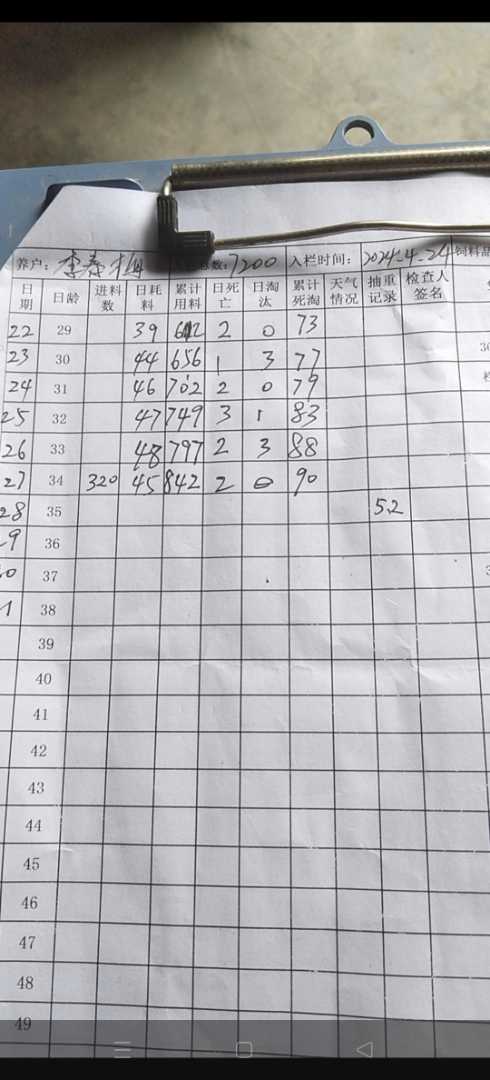 养户: 李春梅 总数: 7200 入栏时间: 2024.4.24 饲料品
日期 日龄 进料数 日耗料 累计用料 日死亡 日淘汰 累计死淘 天气情况 抽重记录 检查人签名
22 29 39 612 2 0 73
23 30 44 656 1 3 77
24 31 46 702 2 0 79
25 32 47 749 3 1 83
26 33 48 797 2 3 88
27 34 320 45 842 2 0 90
28 35 5.2
29 36
30 37
31 38
39
40
41
42
43
44
45
46
47
48
49